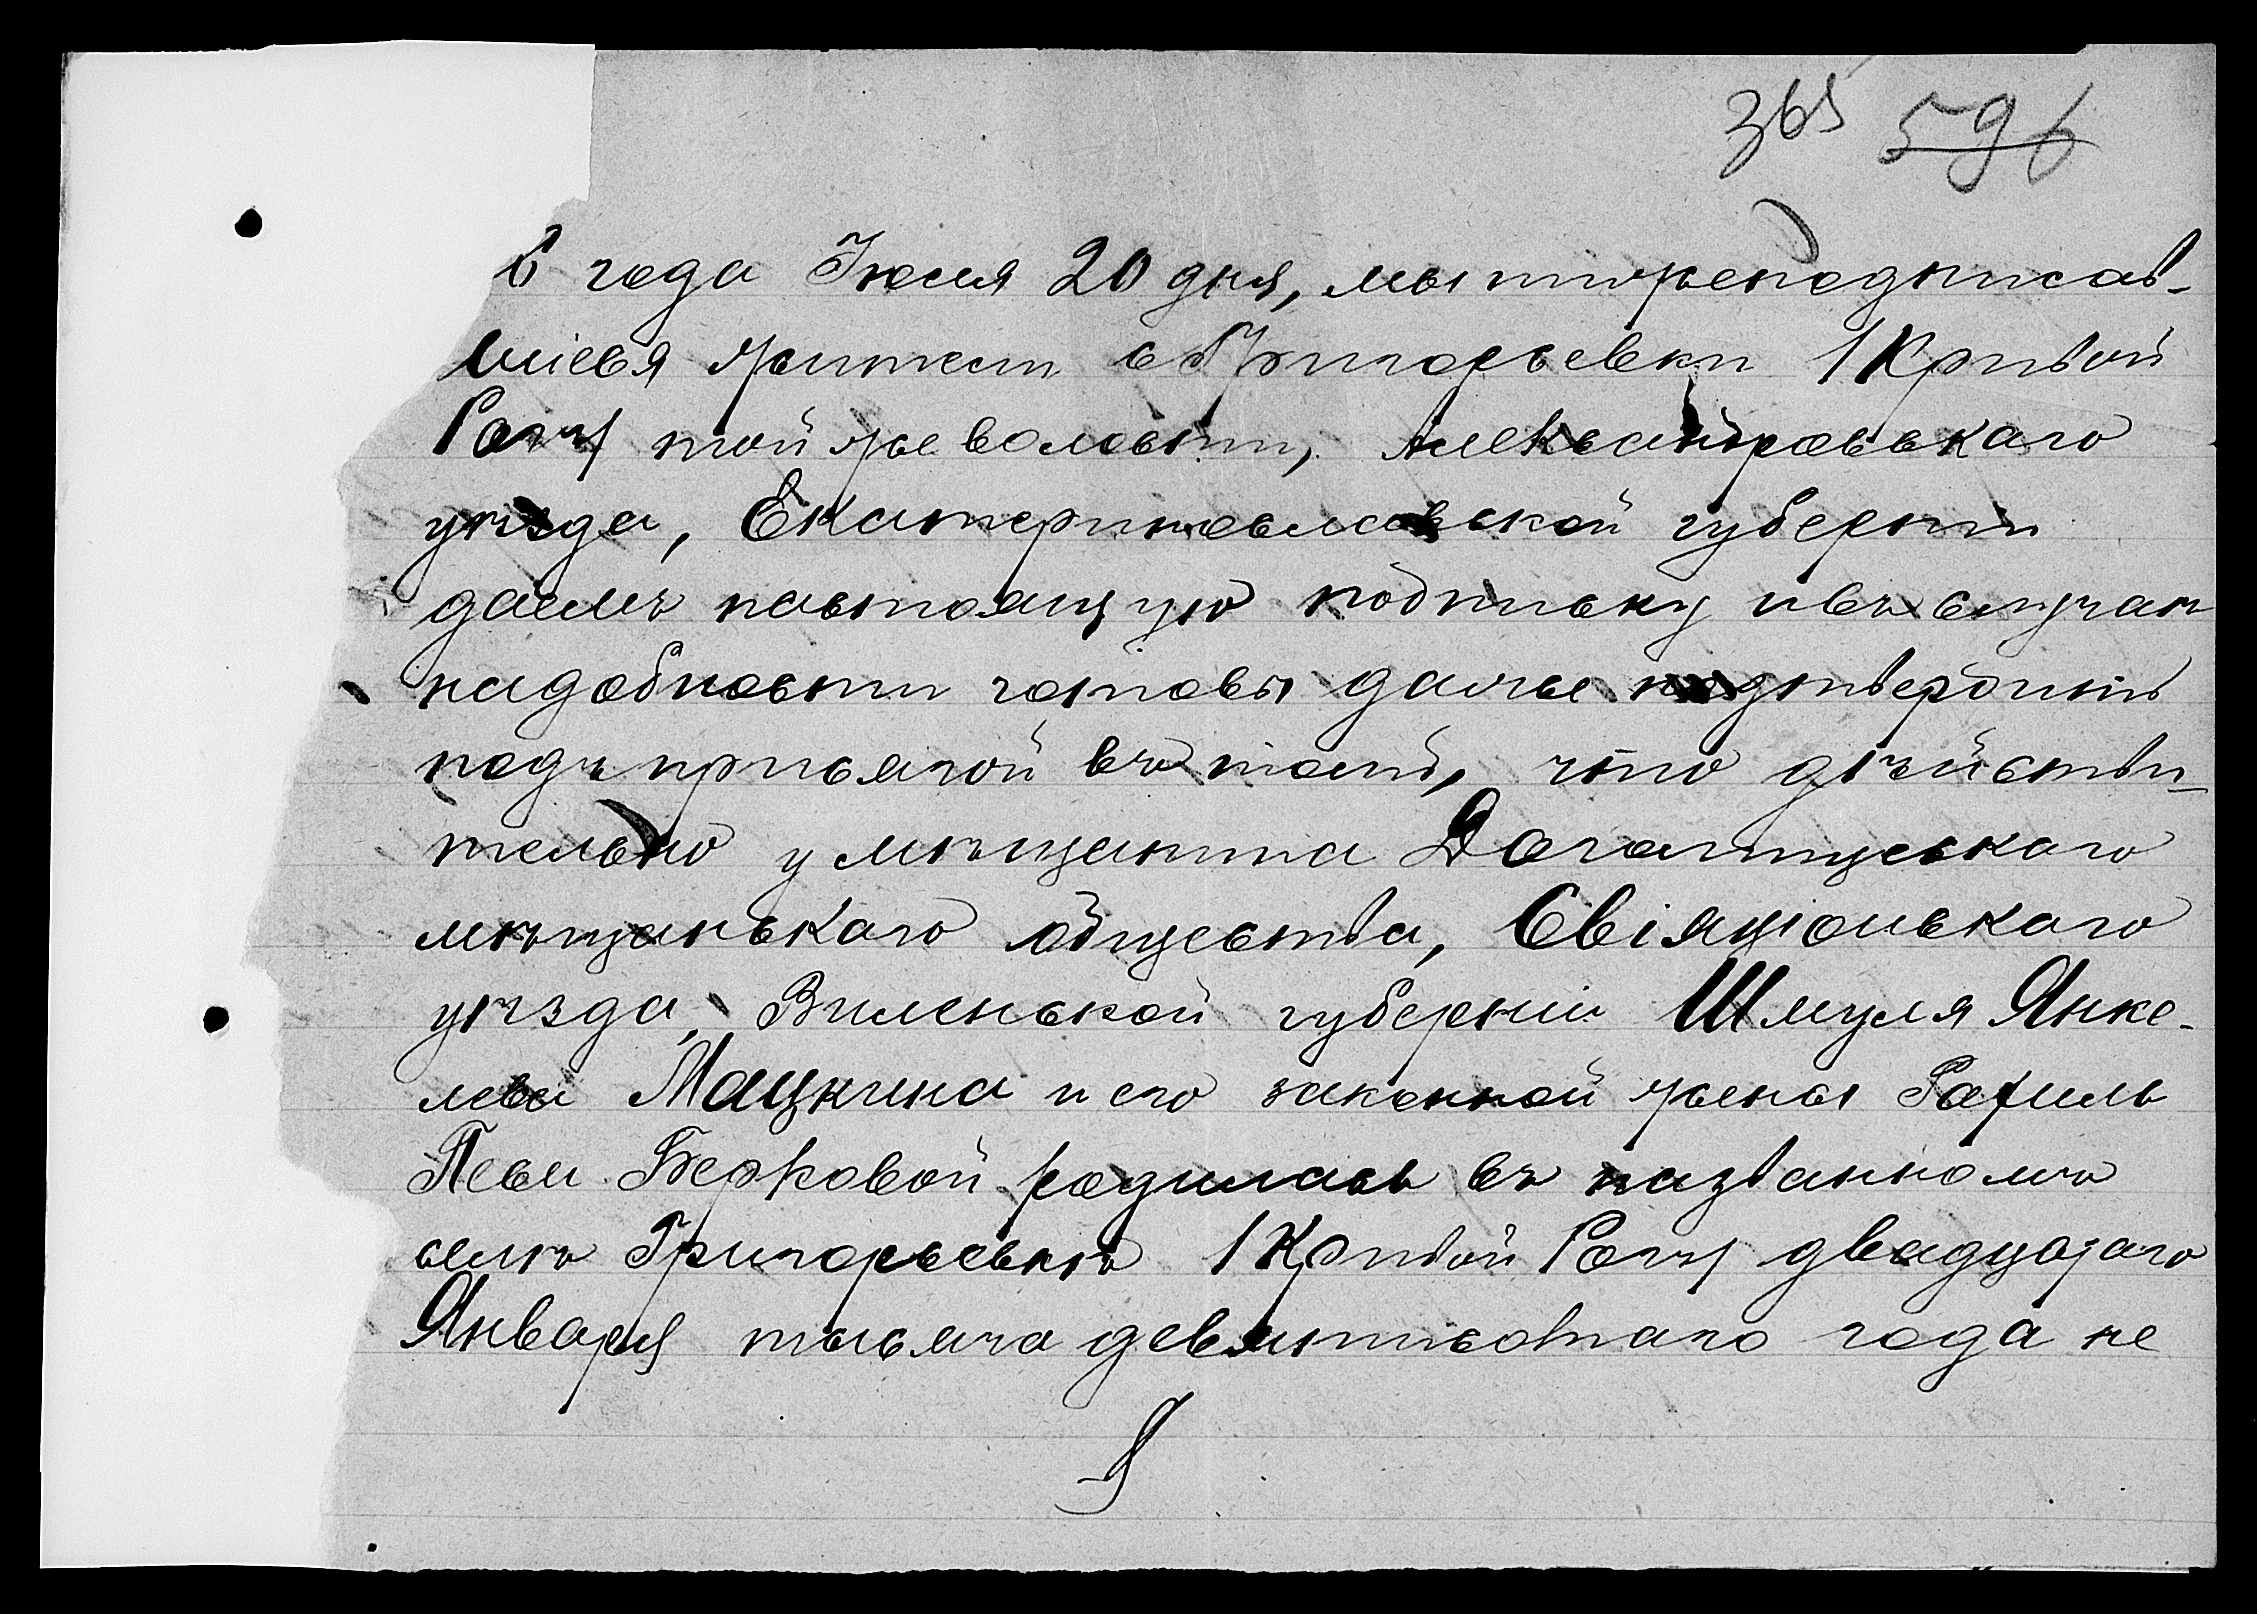 365 596
6 года Іюля 20 дня, мы нижеподписав-
шіеся жители с Григорьевки / Кривой
Рогъ той же волости, Александровскаго
уѣзда, Екатеринославской губерніи
даемъ настоящую подписку и въ случаѣ
надобности готовы даже подтвердить
подъ присягой въ томъ, что дѣйстви-
тельно у мѣщанина Догалишскаго
мѣщанскаго общества, Свіяцонскаго
уѣзда, Виленской губерніи Шмуля Янке-
лева Мацкина и его законной жены Рахиль
Песи Берковой родилась въ названномъ
селѣ Григорьевкѣ / Кривой Рогъ двадцатаго
Января тысяча девятисотаго года не